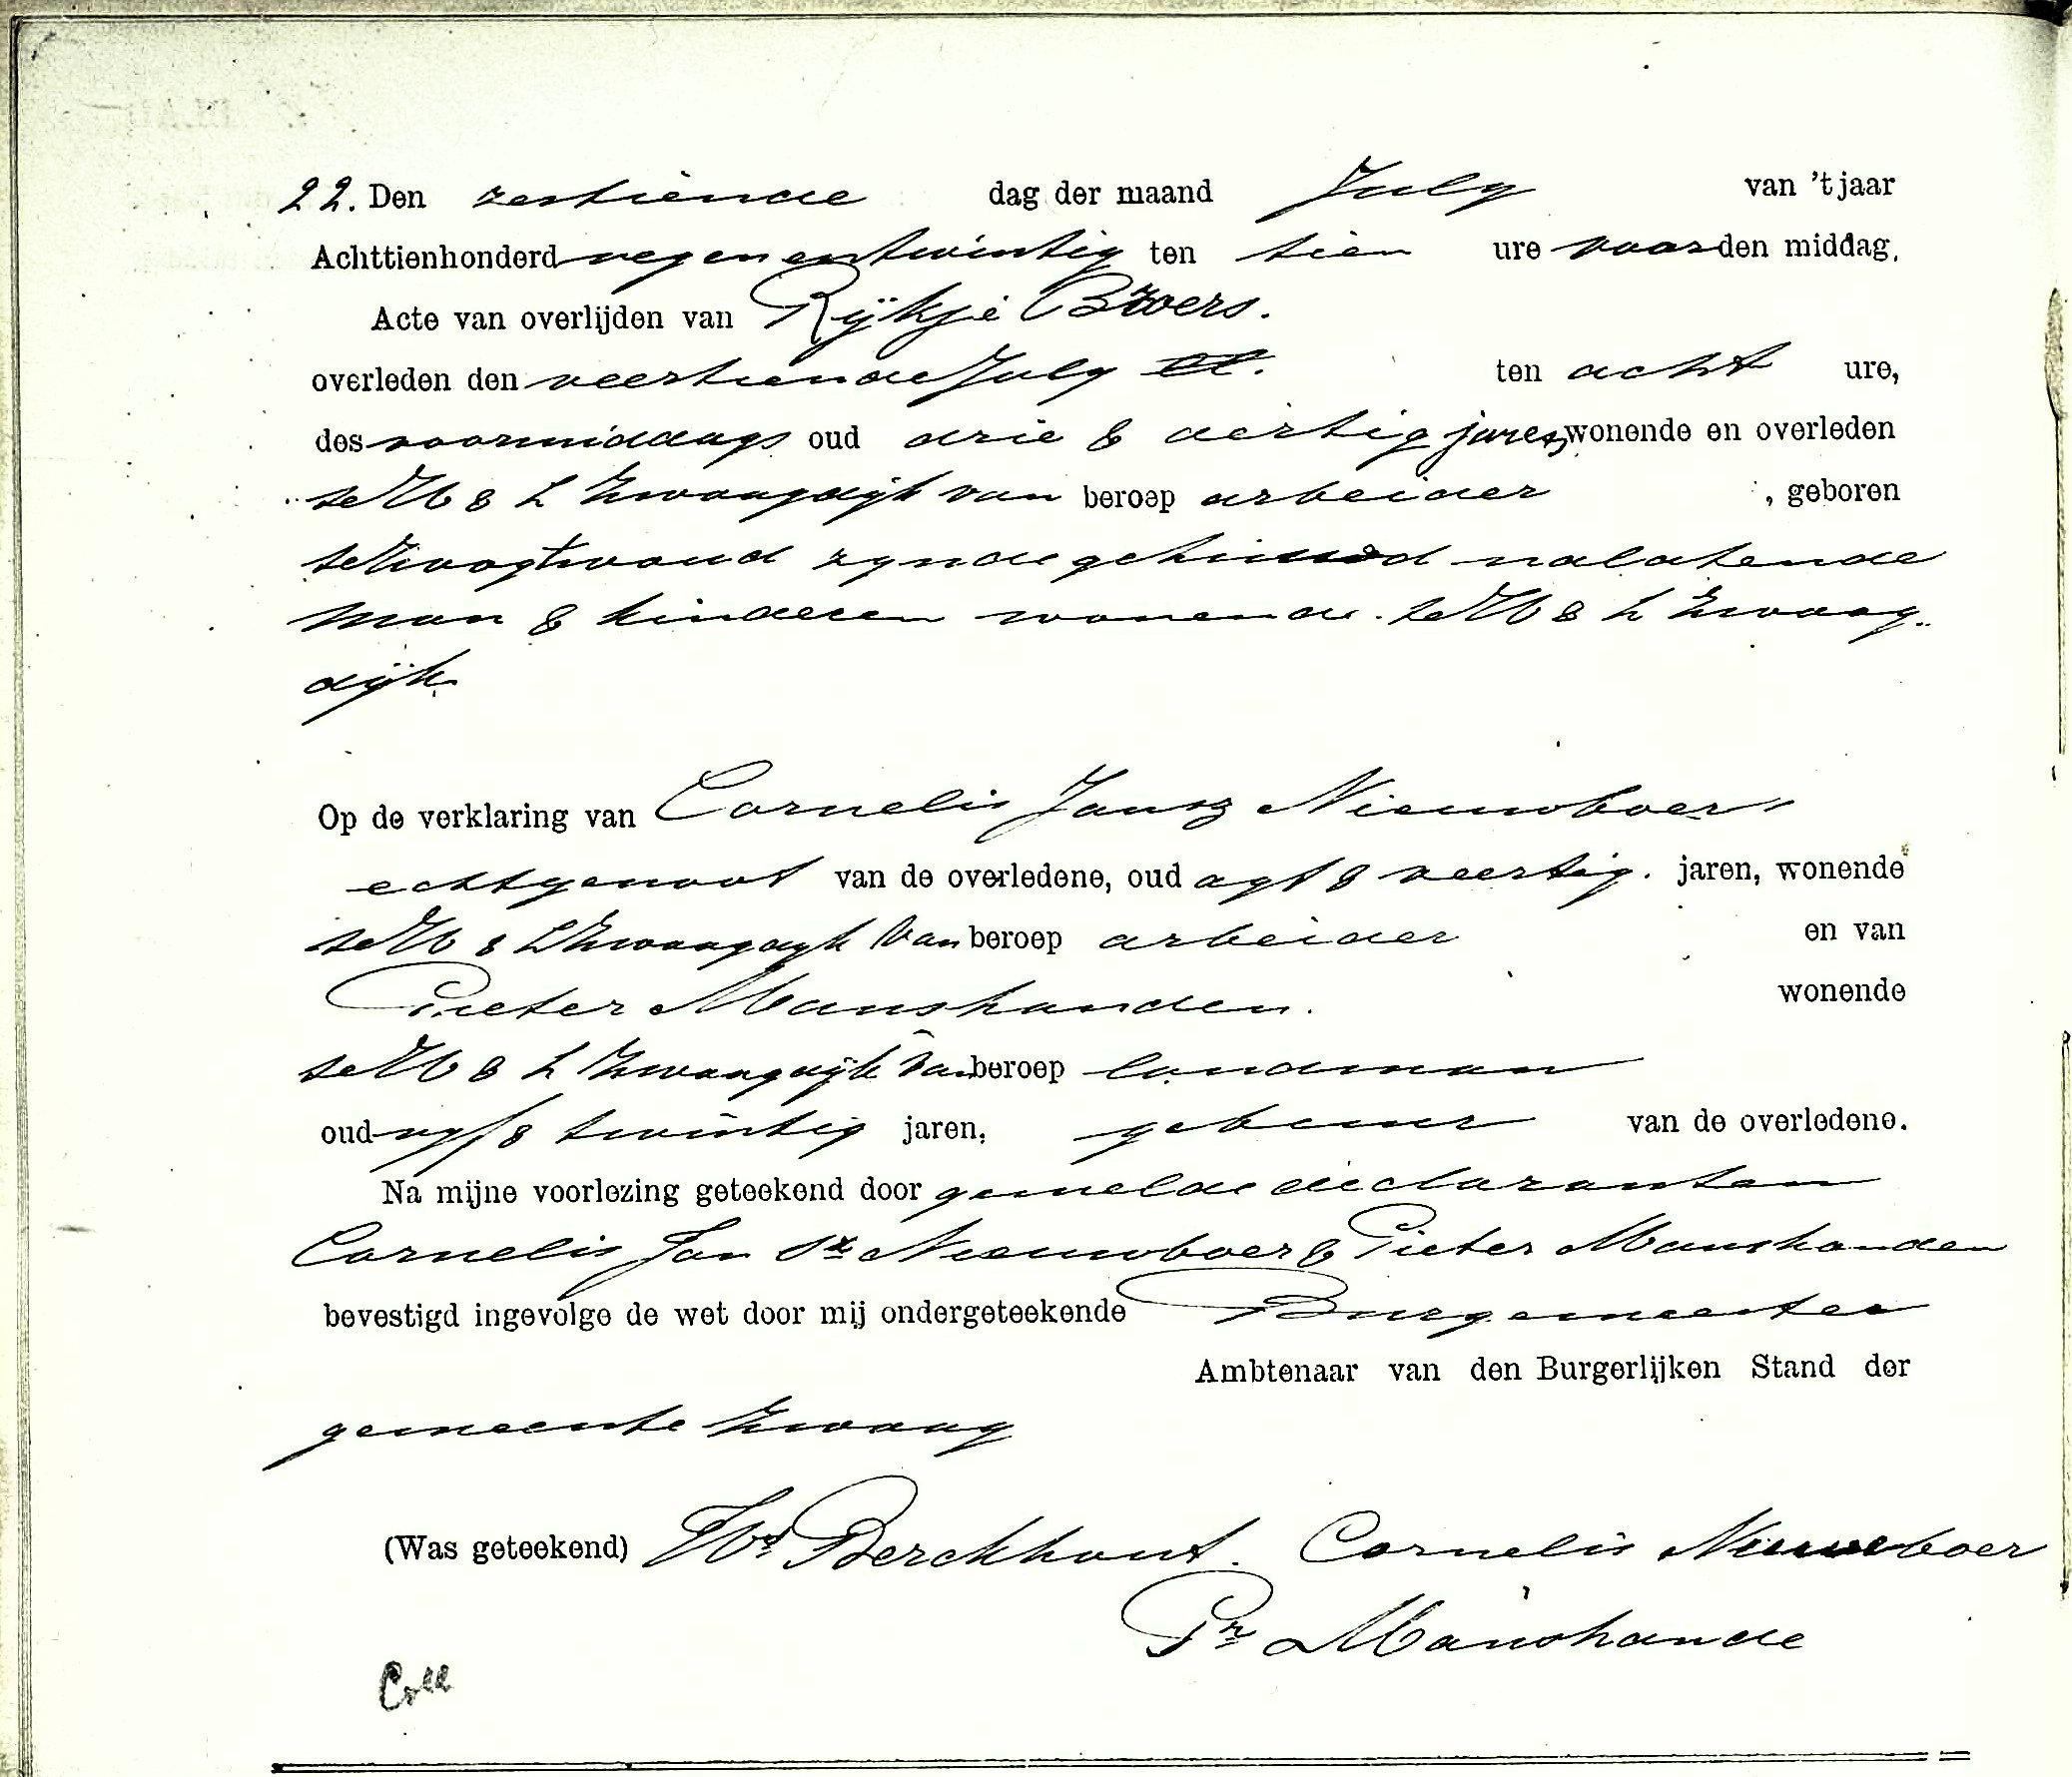 22. Den zestiende dag der maand July van 't jaar
Achttienhonderd negen en twintig ten tien ure voor den middag.
Acte van overlijden van Rÿkje Broers.
overleden den veertiende July ten acht ure,
des voormiddags oud drie & dertig jaren, wonende en overleden
te W & L Zwaagdijk van beroep arbeider, geboren
te Hoogtwoud zynde gehuwd nalatende
man & kinderen wonende te W & L Zwaag-
dijk.
Op de verklaring van Cornelis Jansz Nieuwboer,
echtgenoot van de overledene, oud agt & veertig. jaren, wonende
te W & L Zwaagdyk van beroep arbeider en van
Pieter Manshanden. wonende
te W & L Zwaagdijk van beroep landman
oud vyf & twintig jaren, gebuur van de overledene.
Na mijne voorlezing geteekend door gemelde declaranten
Cornelis Jan sz Nieuwboer & Pieter Manshanden
bevestigd ingevolge de wet door mij ondergeteekende Burgemeester
Ambtenaar van den Burgerlijken Stand der
gemeente Zwaag
(Was geteekend) Wr Berckhout. Cornelis Nieuweboer
Pr Manshande
Coll